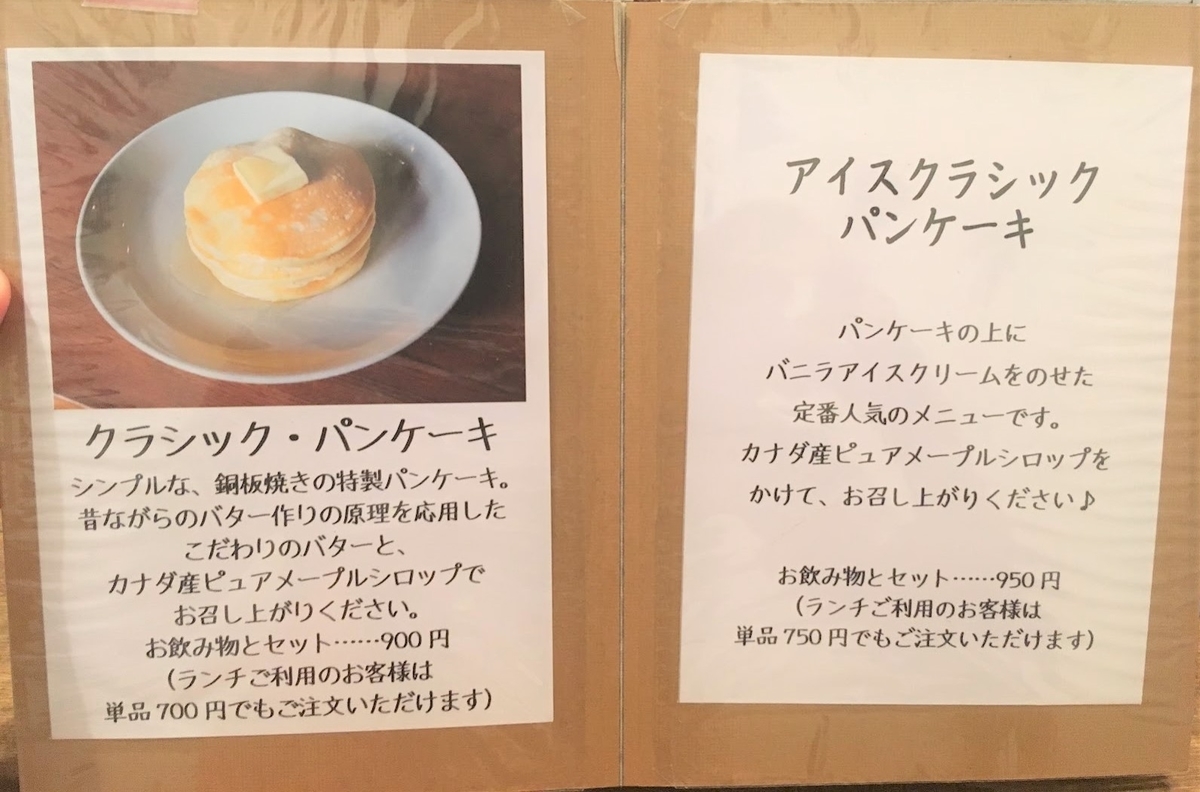 クラシック・パンケーキ
シンプルな、銅板焼きの特製パンケーキ。
昔ながらのバター作りの原理を応用した
こだわりのバターと、
カナダ産ピュアメープルシロップで
お召し上がりください。
お飲み物とセット……900円
(ランチご利用のお客様は
単品700円でもご注文いただけます)
アイスクラシック
パンケーキ
パンケーキの上に
バニラアイスクリームをのせた
定番人気のメニューです。
カナダ産ピュアメープルシロップを
かけて、お召し上がりください♪
お飲み物とセット……950円
(ランチご利用のお客様は
単品750円でもご注文いただけます)